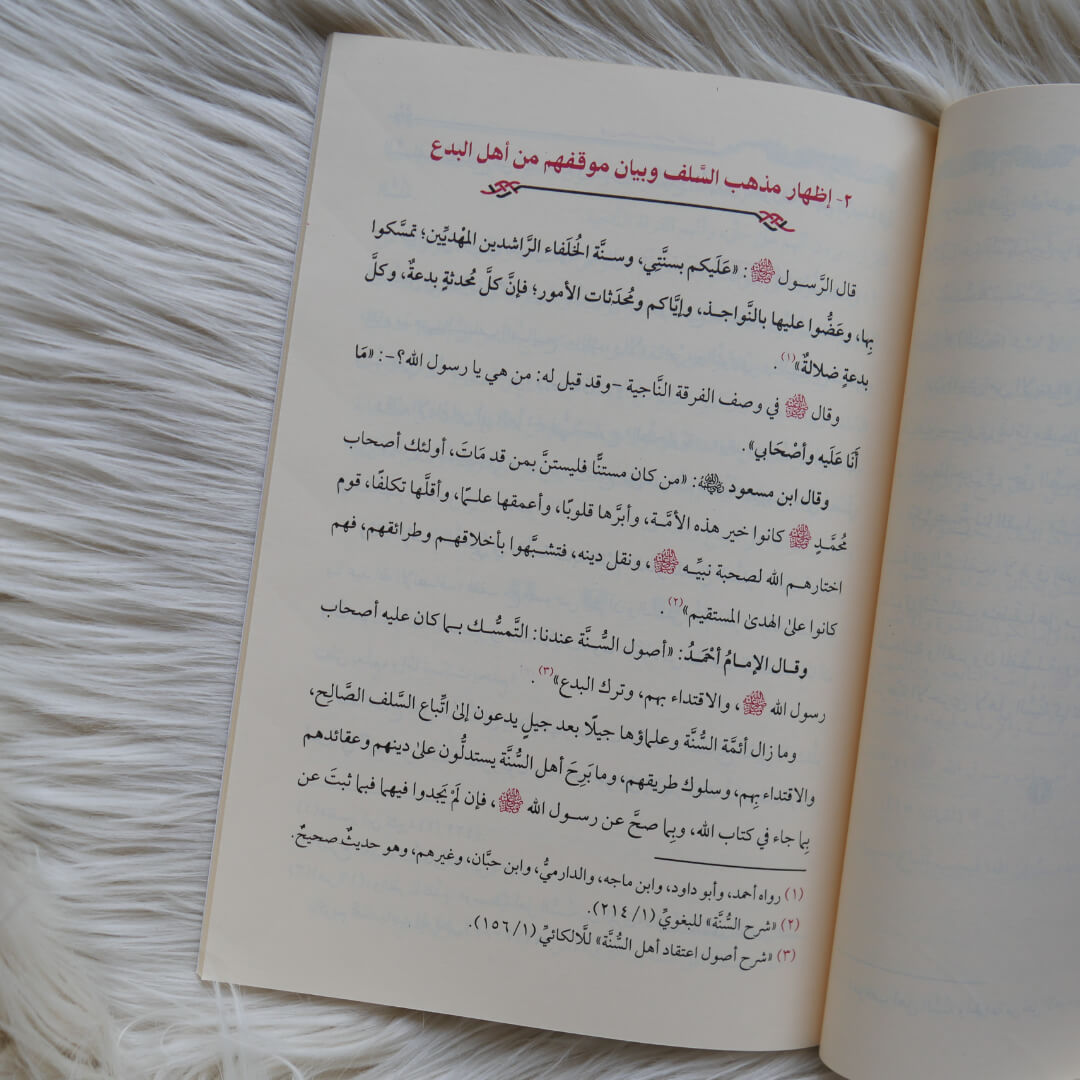 ٢- إظهار مذهب السَّلف وبيان موقفهم من أهل البدع
قال الرَّسول ﷺ: «عَلَيكم بسنَّتِي، وسنَّة الخُلَفاء الرَّاشدين المهْديِّين؛ تمسَّكوا
بِها، وعَضُّوا عليها بالنَّواجذ، وإيَّاكم ومُحدَثات الأمور؛ فإنَّ كلَّ مُحدثةٍ بدعةٌ، وكلَّ
بدعةٍ ضلالةٌ»(١).
وقال ﷺ في وصف الفرقة النَّاجية -وقد قيل له: من هي يا رسول الله؟-: «مَا
أَنَا عَلَيه وأصْحَابي».
وقال ابن مسعود رضي الله عنه: «من كان مستنًّا فليستنَّ بمن قد مَاتَ، أولئك أصحاب
مُحمَّدٍ ﷺ كانوا خير هذه الأمَّة، وأبرَّها قلوبًا، وأعمقها علمًا، وأقلَّها تكلفًا، قوم
اختارهم الله لصحبة نبيِّه ﷺ، ونقل دينه، فتشبَّهوا بأخلاقهم وطرائقهم، فهم
كانوا علىٰ الهدىٰ المستقيم»(٢).
وقال الإمامُ أحْمَدُ: «أصول السُّنَّة عندنا: التَّمسُّك بما كان عليه أصحاب
رسول الله ﷺ، والاقتداء بهم، وترك البدع»(٣).
وما زال أئمَّة السُّنَّة وعلماؤها جيلًا بعد جيلٍ يدعون إلىٰ اتِّباع السَّلف الصَّالِح،
والاقتداء بِهِم، وسلوك طريقهم، وما بَرِحَ أهل السُّنَّة يستدلُّون علىٰ دينهم وعقائدهم
بِما جاء في كتاب الله، وبِما صحَّ عن رسول الله ﷺ، فإن لَمْ يَجدوا فيهما فبما ثبتَ عن
(١) رواه أحمد، وأبو داود، وابن ماجه، والدارميُّ، وابن حبَّان، وغيرهم، وهو حديثٌ صحيحٌ.
(٢) «شرح السُّنَّة» للبغويِّ (١/ ٢١٤).
(٣) «شرح أصول اعتقاد أهل السُّنَّة» للَّالكائيِّ (١/ ١٥٦).